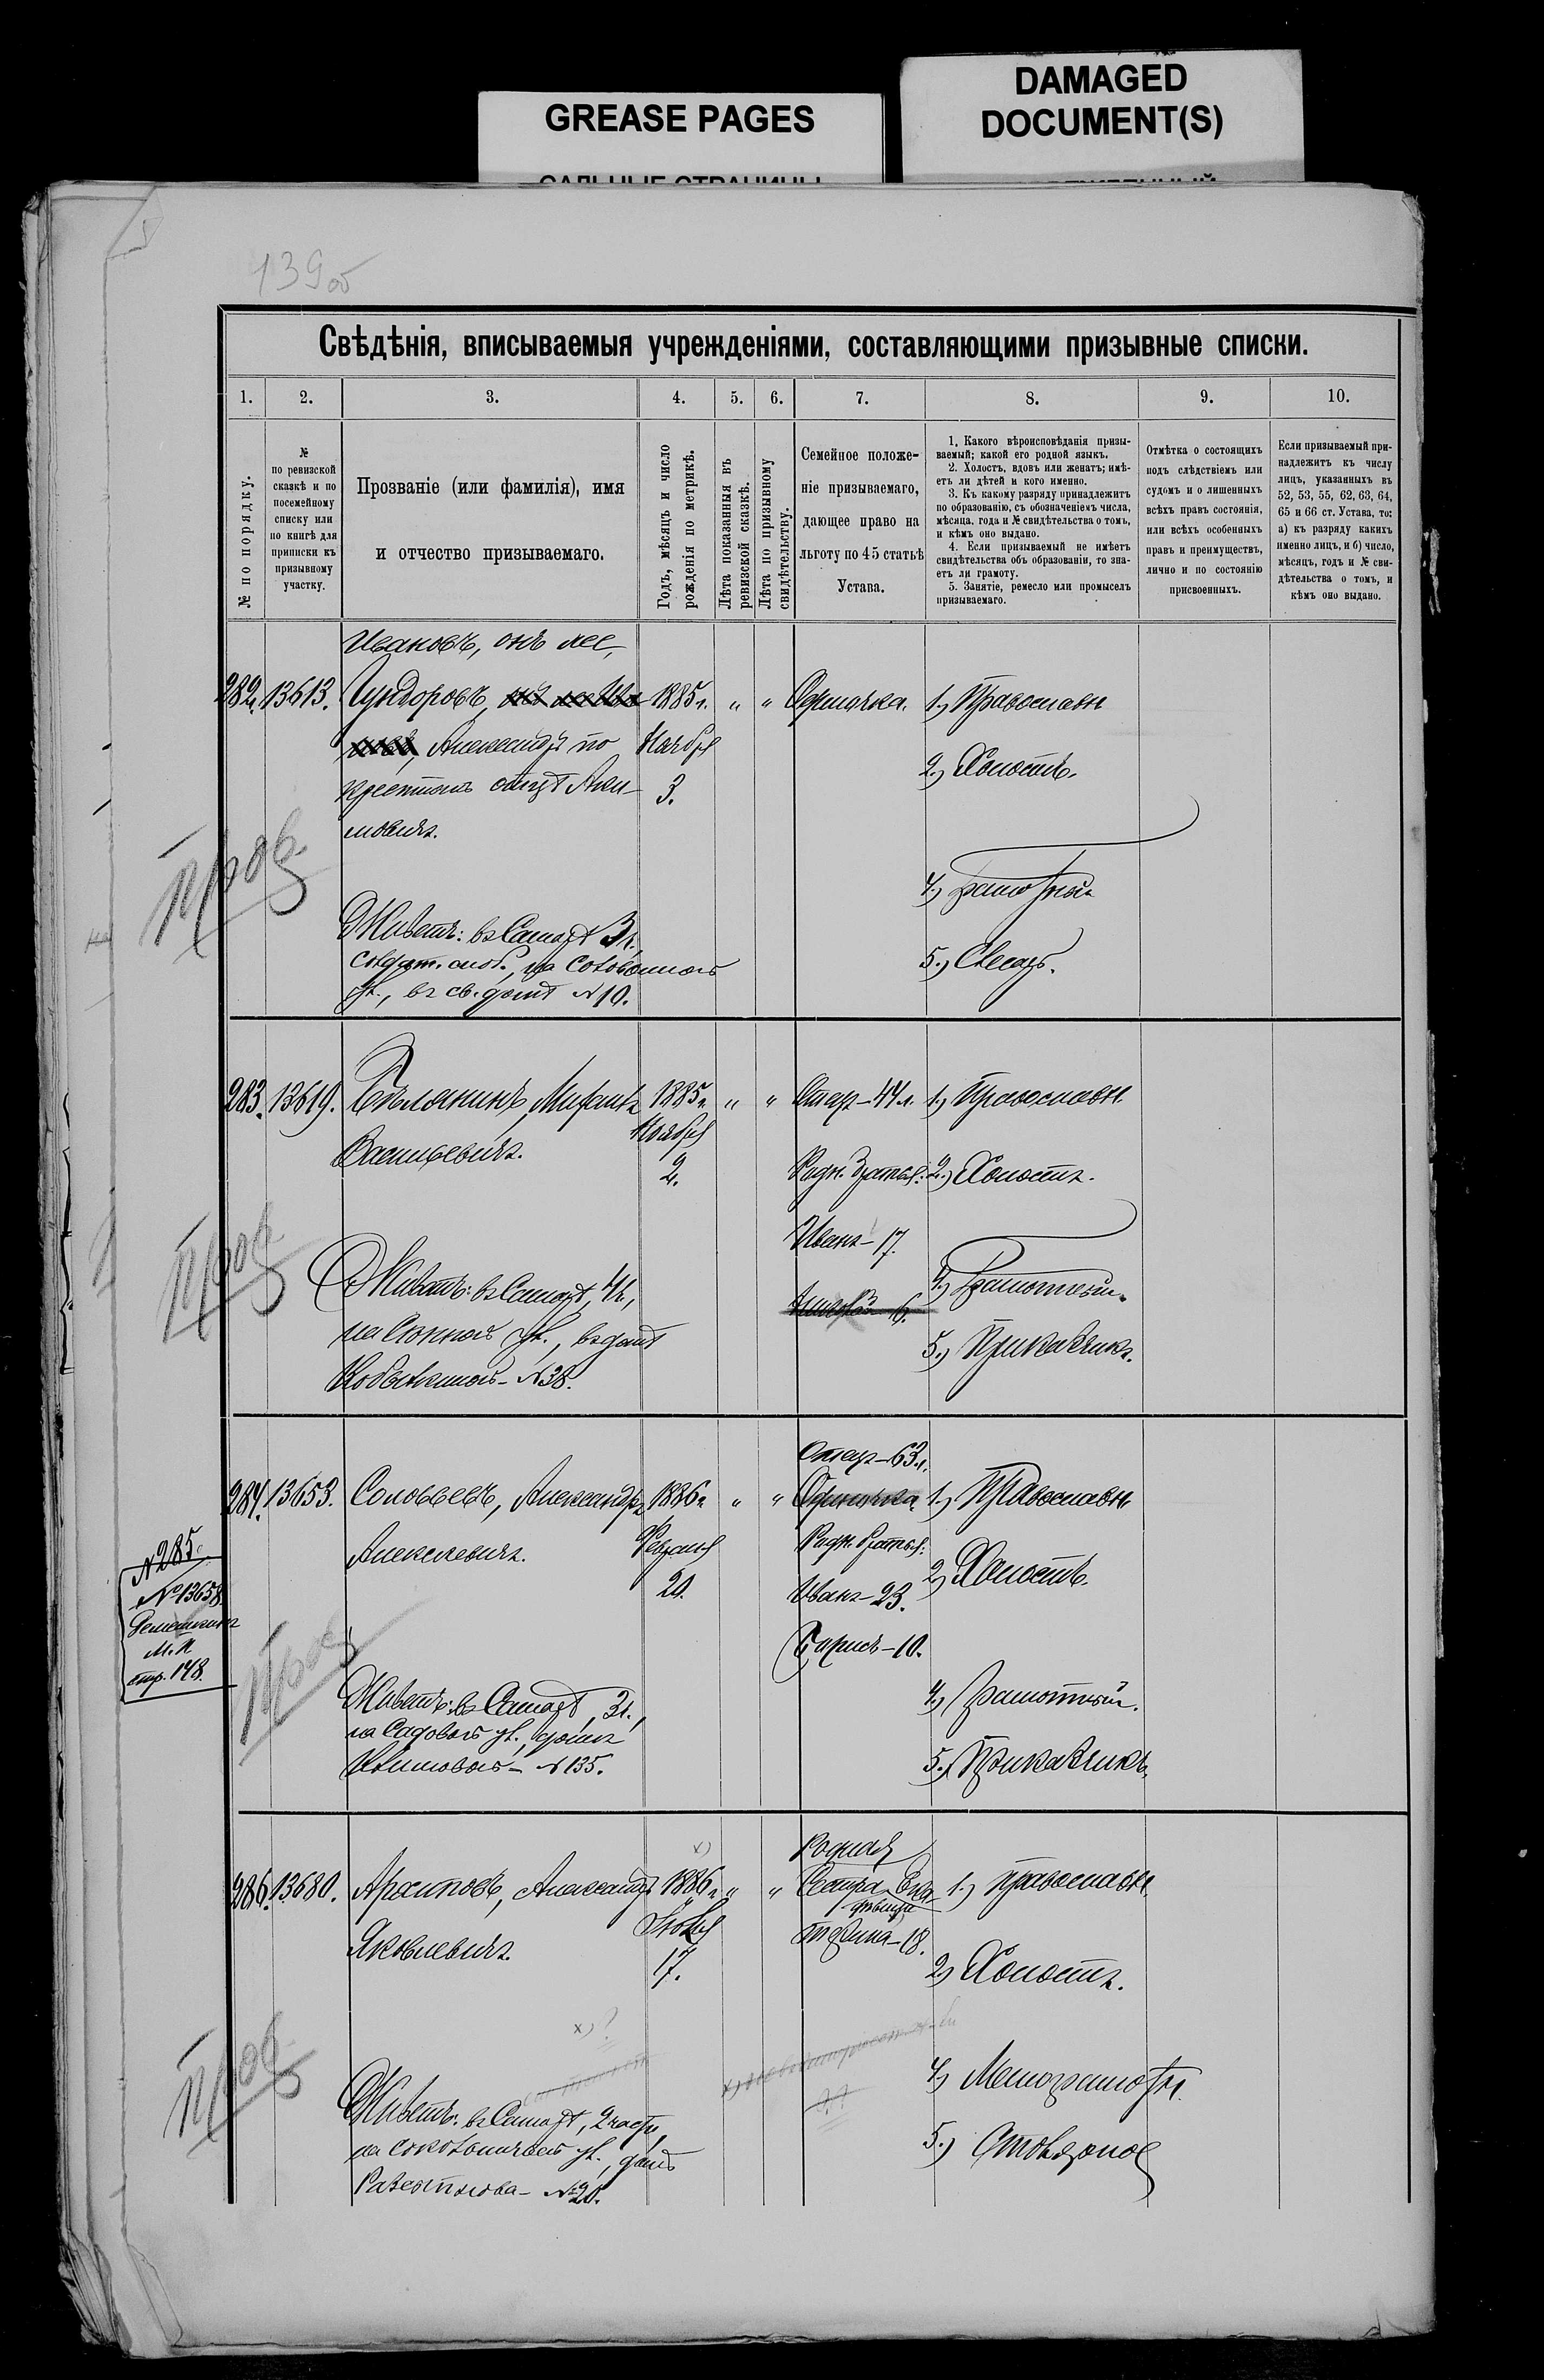 GREASE PAGES
DAMAGED
DOCUMENT(S)
139об
Свѣдѣнія, вписываемыя учрежденіями, составляющими призывные списки.
1. 2. 3. 4. 5. 6. 7. 8. 9. 10.
№ по порядку.
№
по ревизской
сказкѣ и по
посемейному
списку или
по книгѣ для
приписки къ
призывному
участку.
Прозваніе (или фамилія), имя
и отчество призываемаго.
Годъ, мѣсяцъ и число
рожденія по метрикѣ.
Лѣта показанныя въ
ревизской сказкѣ.
Лѣта по призывному
свидѣтельству.
Семейное положе-
ніе призываемаго,
дающее право на
льготу по 45 статьѣ
Устава.
1. Какого вѣроисповѣданія призы-
ваемый; какой его родной языкъ.
2. Холостъ, вдовъ или женатъ; имѣ-
етъ ли дѣтей и кого именно.
3. Къ какому разряду принадлежитъ
по образованію, съ обозначеніемъ числа,
мѣсяца, года и № свидѣтельства о томъ,
и кѣмъ оно выдано.
4. Если призываемый не имѣетъ
свидѣтельства объ образованіи, то зна-
етъ ли грамоту.
5. Занятіе, ремесло или промыселъ
призываемаго.
Отмѣтка о состоящихъ
подъ слѣдствіемъ или
судомъ и о лишенныхъ
всѣхъ правъ состоянія,
или всѣхъ особенныхъ
правъ и преимуществъ,
лично и по состоянію
присвоенныхъ.
Если призываемый при-
надлежитъ къ числу
лицъ, указанныхъ въ
52, 53, 55, 62, 63, 64,
65 и 66 ст. Устава, то:
а) къ разряду какихъ
именно лицъ, и б) число,
мѣсяцъ, годъ и № сви-
дѣтельства о томъ, и
кѣмъ оно выдано.
Ивановъ, онъ же,
282. 13613. Гундоровъ, 1885 г. " " Одиночка. 1.) Православн
Александръ по Ноября
крестномъ отцѣ Аки- 3. 2.) Холостъ.
мовичъ.
пров.
4.) грамотный
Живетъ: въ Самарѣ 3 ч.
солдат. слоб., на
ул., въ св. домѣ № 10.
5.) Слесарь.
283. 13619. Бѣлянинъ, 1885 г. " " Отецъ - 44 л. 1.) Православн.
Васильевичъ. Ноября
2. Родн. братья: 2.) Холостъ.
Иванъ - 17.
пров
Живетъ: въ Самарѣ, 4 ч., 4.) Грамотный.
на Сѣнной ул., въ домѣ
№ 38. 5.) Приказчикъ.
Отецъ - 63 л.
284. 13653. Соловьевъ, Александръ 1886 г. " " Одиночка 1.) Православн
Алексеевичъ. Февраля Родн. братья:
20. Иванъ - 23. 2.) Холостъ.
Борисъ - 10.
№ 285.
№ 13658.
М. П.
стр. 148.
пров
Живетъ: въ Самарѣ, 3 ч., 4.) Грамотный.
на Садовой ул., домъ
№ 135. 5.) Приказчикъ.
х) Родная
286. 13680. Архиповъ, Александръ 1886 г. " " Сестра Ека- 1.) Православн
дѣвица
Яковлевичъ. Іюля терина - 18.
17. 2.) Холостъ.
х) ?
пров
4.) Малограмотн.
Живетъ: въ Самарѣ, 2 части,
на ул., домъ 5.) Столярное
№ 20.